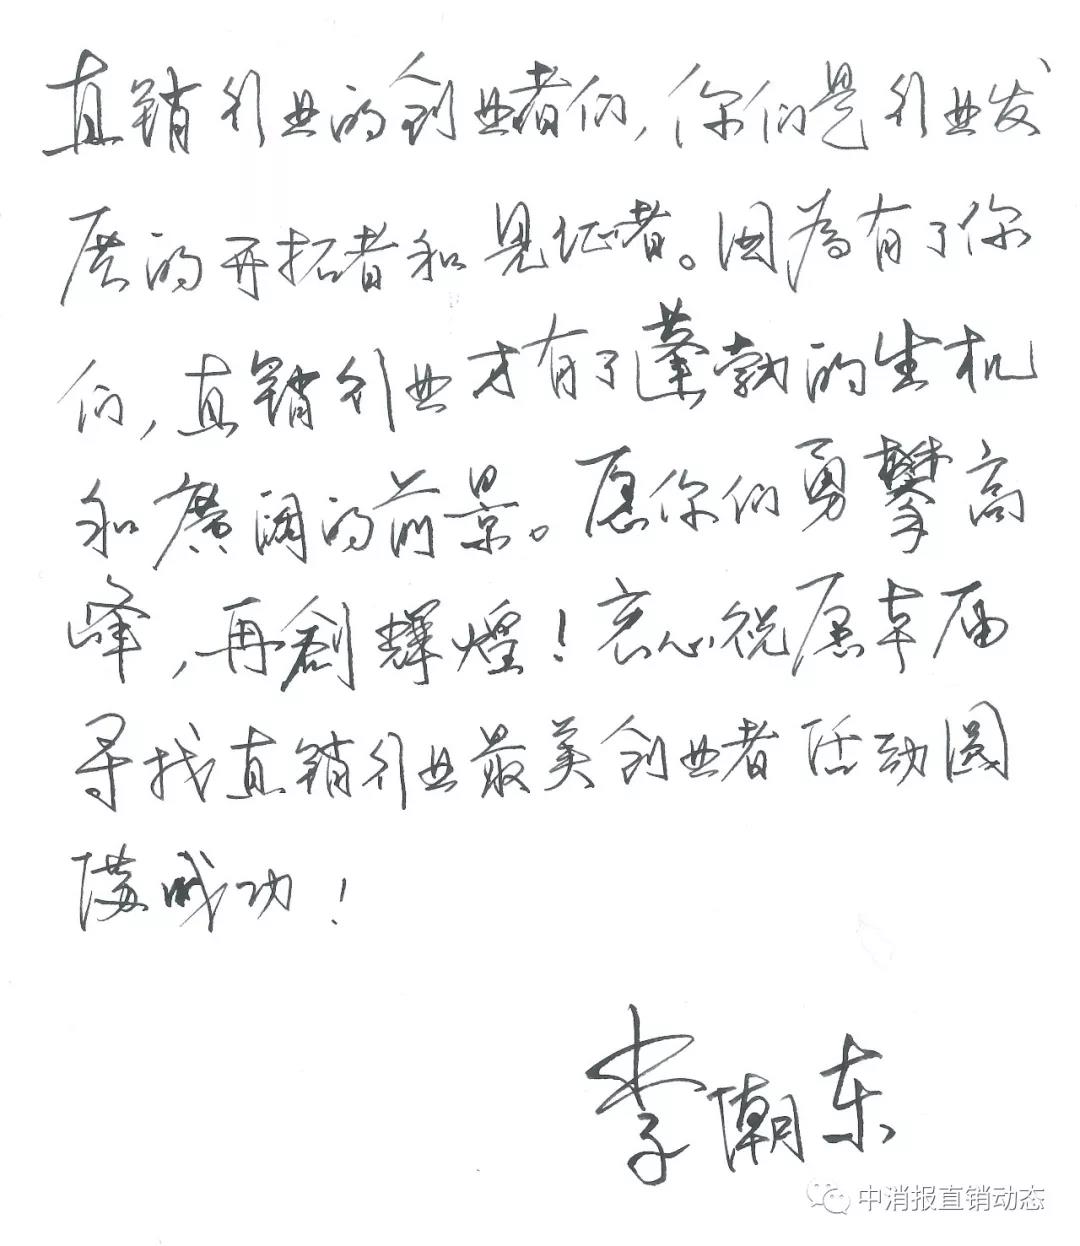 直销行业的创业者们,你们是行业发
展的开拓者和见证者。因为有了你
们,直销行业才有了蓬勃的生机
和廣阔的前景。愿你们勇攀高
峰,再创辉煌!衷心祝愿本届
寻找直销行业最美创业者活动圆
满成功!
李潮东
中消报直销动态